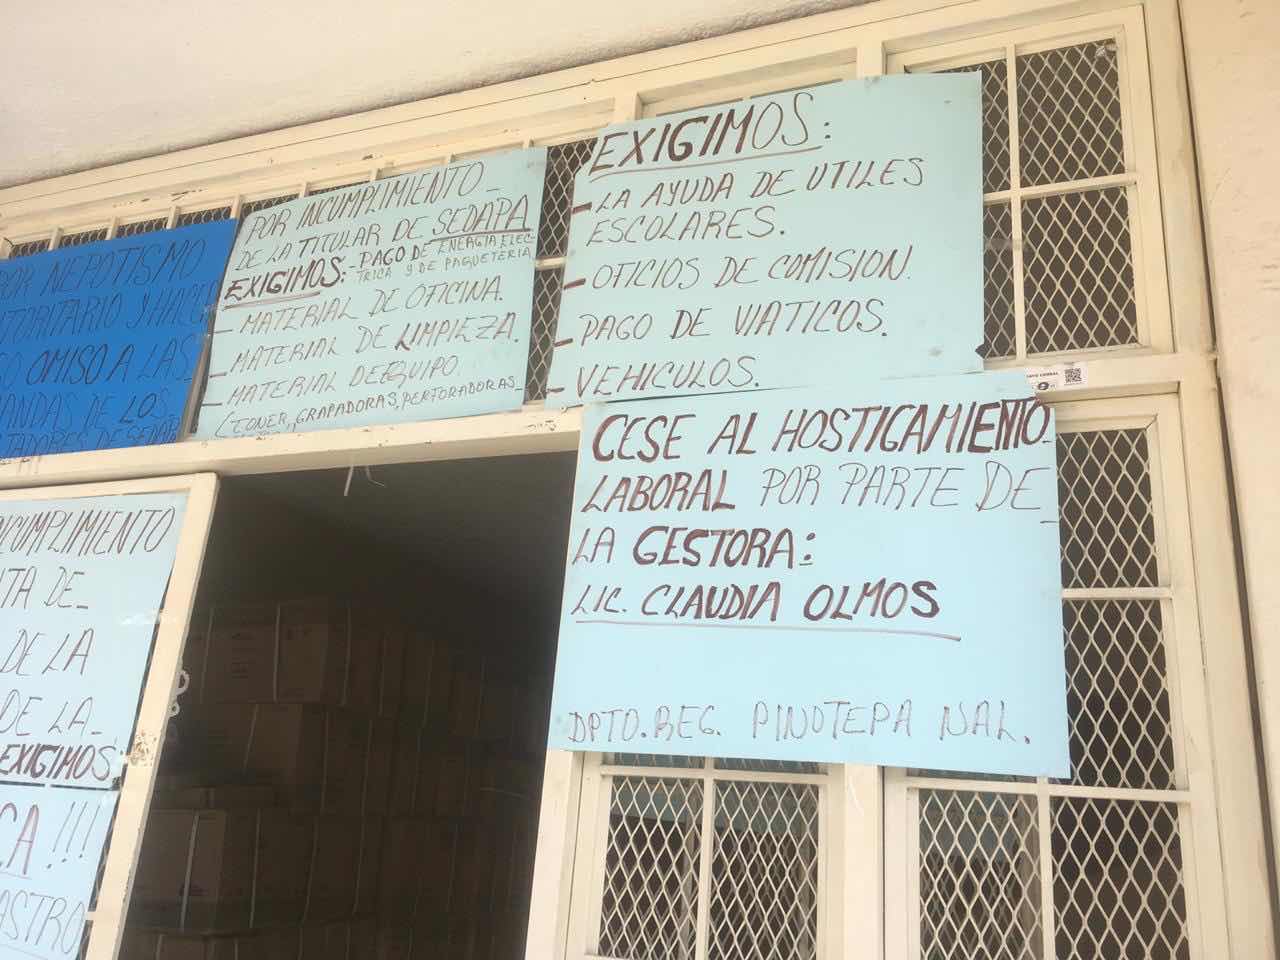 POR NEPOTISMO
OMISO A LAS
DE LOS
DE SEDAP
POR INCUMPLIMIENTO_
DE LA TITULAR DE SEDAPA
EXIGIMOS:- PAGO DE ENERGIA ELEC-
TRICA Y DE PAQUETERIA
- MATERIAL DE OFICINA.
- MATERIAL DE LIMPIEZA.
- MATERIAL DE EQUIPO.
(TONER, GRAPADORAS, PERFORADORAS_
EXIGIMOS:
- LA AYUDA DE UTILES
ESCOLARES.
- OFICIOS DE COMISION.
- PAGO DE VIATICOS.
- VEHICULOS.
CESE AL HOSTIGAMIENTO_
LABORAL POR PARTE DE_
LA GESTORA:
LIC. CLAUDIA OLMOS
DPTO. REG. PINOTEPA NAL.
NCUMPLIMIENTO
TA DE_
DE LA
DE LA_
EXIGIMOS
CA !!!
ASTRO